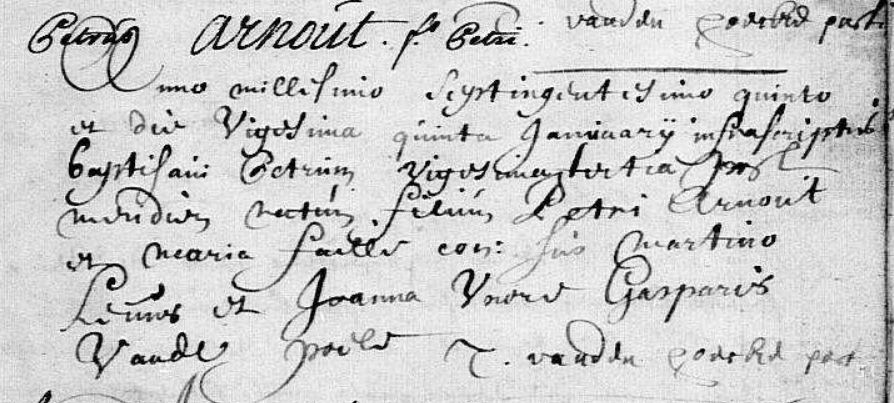 Petrus Arnout. fs Petri. vanden past
Anno millesimo Septingentesimo quinto
et die Vigesima quinta Januarij infrascriptus
baptisavi Petrum Vigesima tertia post
meridiem natum filium Petri Arnout
et Maria faille con: sus Martino
et Joanna Gasparis
Vande T. vanden past